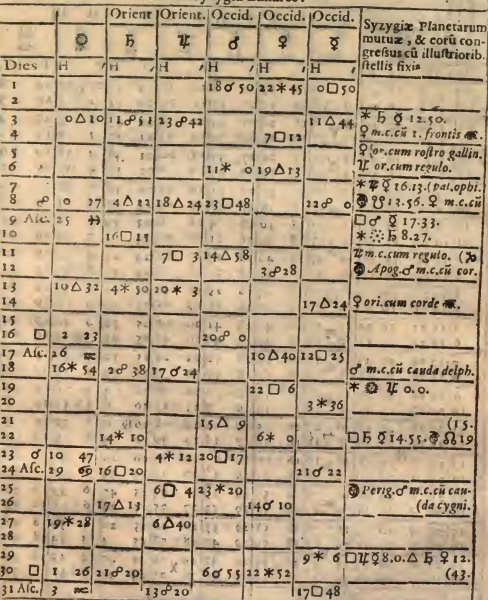 Orient Orient. Occid. Occid. Occid.
☉ ♄ ♃ ♂ ♀ ☿ Syzygiæ Planetarum
mutuæ, & eorū con-
gressus cū illustriorib.
stellis fixis
Dies H H H H H H
1 18 ☌ 50 22 * 45 0 □ 50
2
3 0 △ 10 23 ☍ 42 11 △ 44 * ♄ ☿ 12.50.
4 7 □ 12 ♀ m.c.cū 1. frontis
5 ♀ or.cum rostro gallin.
6 11 * 0 19 △ 13 ♃ or.cum regulo.
7 * ♃ ☿ 16.13. (pal.ophi.
8 ☍ 0 27 4 △ 22 18 △ 24 23 □ 48 22 ☍ 0 ☋ 13.56. ♀ m.c.cū
9 Asc. 25 ♓ □ ♂ ☿ 17.33.
10 16 □ 15 * ☉ ♄ 8.27.
11 7 □ 3 14 △ 58 m.c.cum regulo.
12 3 ☍ 28 Apog. ♂ m.c.cū cor.
13 10 △ 32 4 * 50 20 * 3
14 17 △ 24 ♀ ori.cum corde
15
16 □ 2 23 20 ☍ 0
17 Asc. 26 ♒ 10 △ 40 12 □ 25
18 16 * 54 2 ☌ 38 17 ☌ 24 ♂ m.c.cū cauda delph.
19 22 □ 6 * ☉ ♃ 0.0.
20 3 * 36
21 15 △ 9 (15.
22 14 * 10 6 * 0 □ ♄ ☿ 14.55. ☊ 19
23 ☌ 10 47 4 * 12 20 □ 17
24 Asc. 29 ♋ 16 □ 20 21 ☌ 22
25 6 □ 4 23 * 20 Perig. ♂ m.c.cū cau-
26 17 △ 13 14 ☌ 10 (da cygni.
27 19 * 28 6 △ 40
28
29 9 * 6 □ ♃ ☿ 8.0. △ ♄ ♀ 12.
30 □ 1 26 21 ☍ 20 6 ☌ 55 22 * 52 (43.
31 Asc. 3 ♒ 13 ☍ 20 17 □ 48